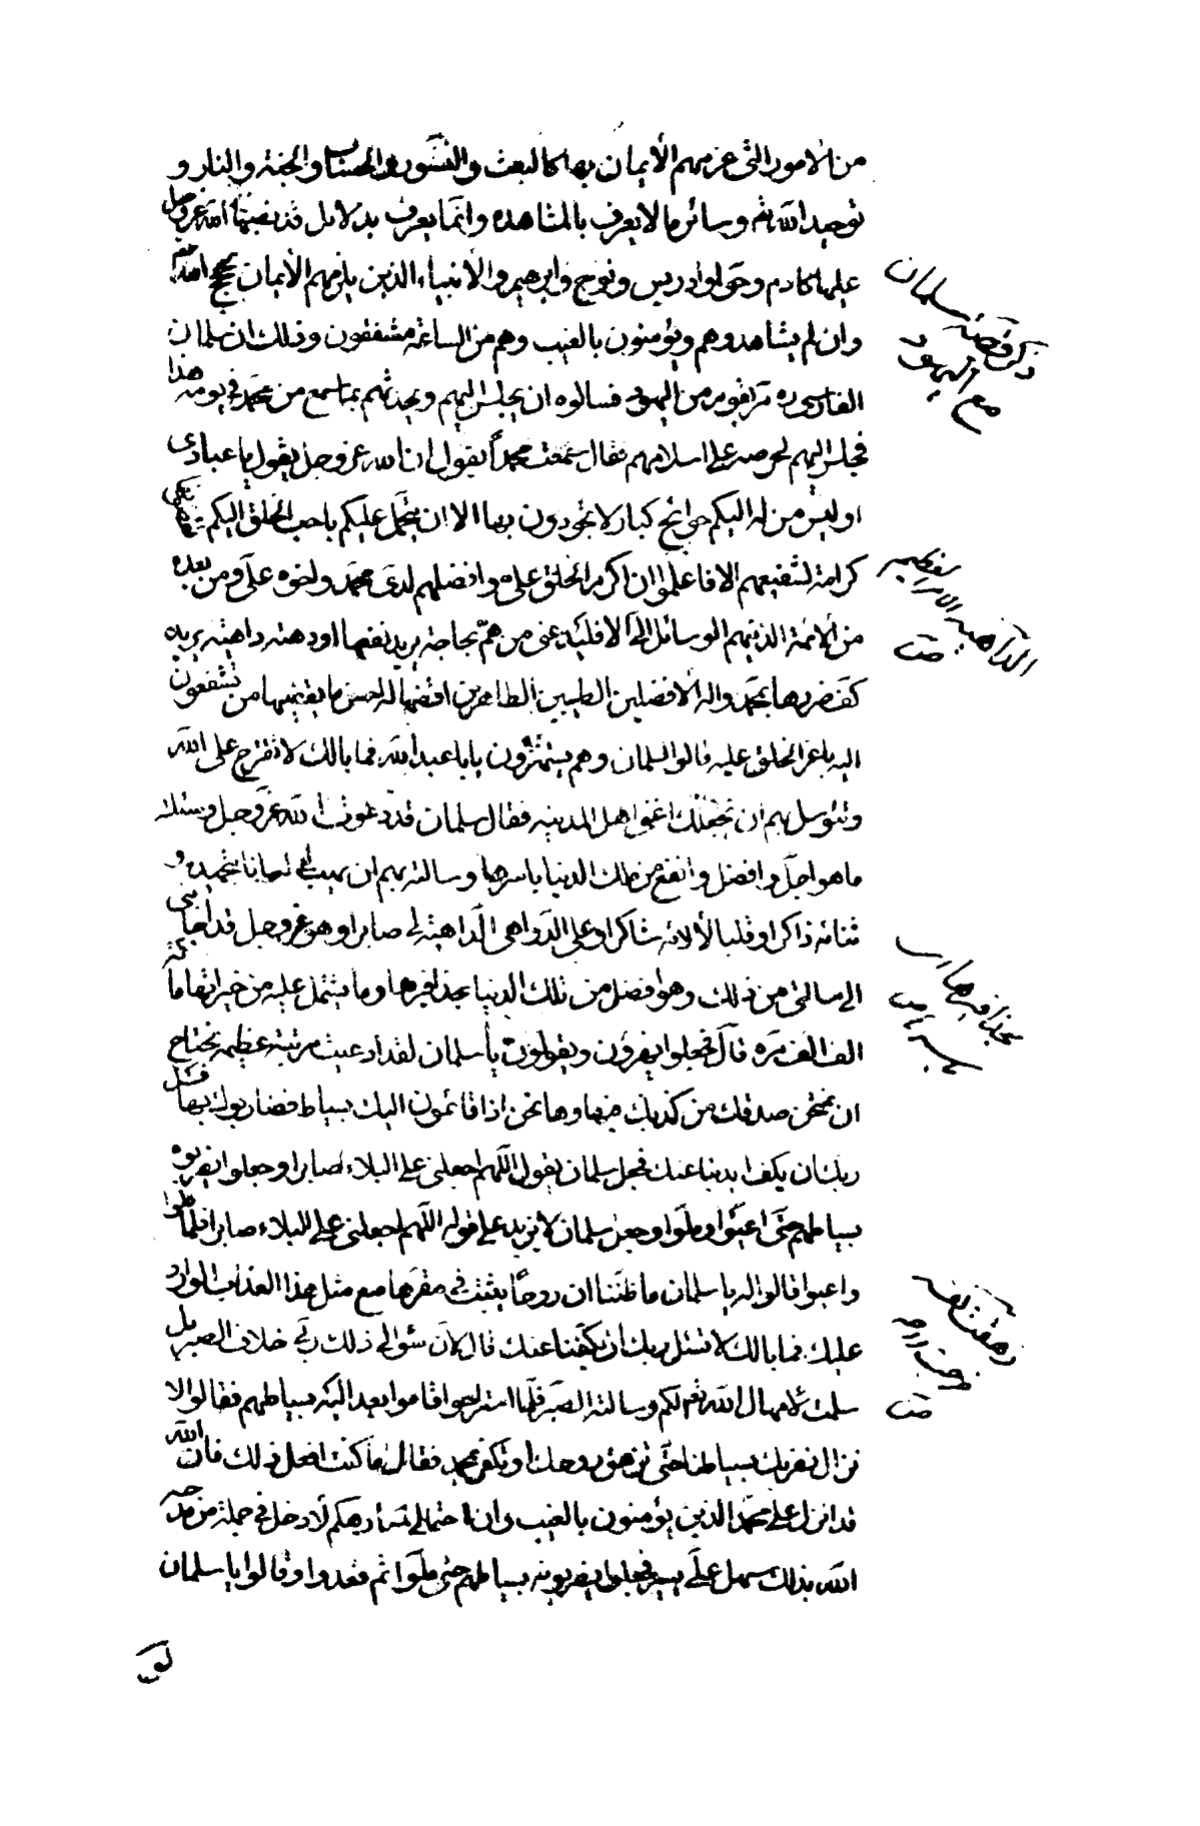 من الامور التى عزمهم الأيمان بها كالبعث والنشور والحساب والجنة والنار و
توحيد الله تع وسائر ما لا يعرف بالمشاهده وانما يعرف بدلايل قد نصبها الله عز وجل
عليها كادم وحوا وادريس ونوح وابرهيم والأنبياء الذين يلزمهم الأيمان بحجج الله تع
وان لم يشاهدوهم ويؤمنون بالغيب وهم من الساعة مشفقون وذلك ان سلمان
الفارسى ره مر بقوم من اليهود فسالوه ان يجلس اليهم ويحدثهم بما سمع من محمد فى يومه هذا
فجلس اليهم لحرصه على اسلامهم فقال سمعت محمداً يقول ان الله عز وجل يقول يا عبادى
او ليس من له اليكم حوائج كبار لا تجودون بها الا ان يتحمل عليكم باحب الخلق اليكم تقضونها
كرامة لشفيعهم الا فاعلموا ان اكرم الخلق على وافضلهم لدى محمد واخوه على ومن بعده
من الأئمة الذين هم الوسائل الى ألا فليدعنى من همّ بحاجة يريد نفعها او دهته داهية يريد
كف ضررها بمحمد واله الافضلين الطيبين الطاهرين اقضها له احسن ما يقضيها من تشفعون
اليه باعز الخلق عليه قالوا لسلمان وهم يستهزؤن يابا عبد الله فما بالك لا تقترح على الله
وتتوسل بهم ان يجعلك اغنى اهل المدينه فقال سلمان قد دعوت الله عز وجل وسئلته
ما هو اجل وافضل وانفع من ملك الدنيا باسرها وسالته بهم ان يهب لى لسانا بتحميده و
ثنائه ذاكرا وقلبا لألائه شاكرا وعلى الدواهى الداهية لى صابرا وهو عز وجل قد اجابنى
الى مسالتى من ذلك وهو افضل من تلك الدنيا بحذافيرها وما يشتمل عليه من خيراتها مائة
الف الف مره قال فجعلوا يهزؤن ويقولون يا سلمان لقد ادعيت مرتبة عظيمه نحتاج
ان نمتحن صدقك من كذبك فيها وها نحن اذا قائمون اليك بسياط فضاربوك بها فسئل
ربك ان يكف ايدينا عنك فجعل سلمان يقول اللهم اجعلنى على البلاء صابرا وجعلوا يضربونه
بسياطهم حتى اعيوا وملوا وجعل سلمان لا يزيد على قوله اللهم اجعلنى على البلاء صابرا فلما ملوا
واعيوا قالوا له يا سلمان ما ظننا ان روحاً يثبت فى مقرها مع مثل هذا العذاب الوارد
عليك فما بالك لا تسئل ربك ان يكفنا عنك قال لأن سؤالى ذلك ربى خلاف الصبر بل
سلمت لامهال الله تع لكم وسالته الصبر فلما استراحوا قاموا بعد اليه بسياطهم فقالوا لا
نزال نضربك بسياطنا حتى تزهق روحك او تكفر بمحمد فقال ما كنت افعل ذلك فان الله
قد انزل على محمد الذين يؤمنون بالغيب وان احتمالى لمكارهكم لأدخل فى جملة من مدحه
الله بذلك سهل على يسير فجعلوا يضربونه بسياطهم حتى ملوا ثم قعدوا وقالوا يا سلمان
ذكر قصة سلمان
مع اليهود
الداهية الامر العظيم
ص
بحذافيرها
زهقت نفسه
خرجت روحه
ص
لو